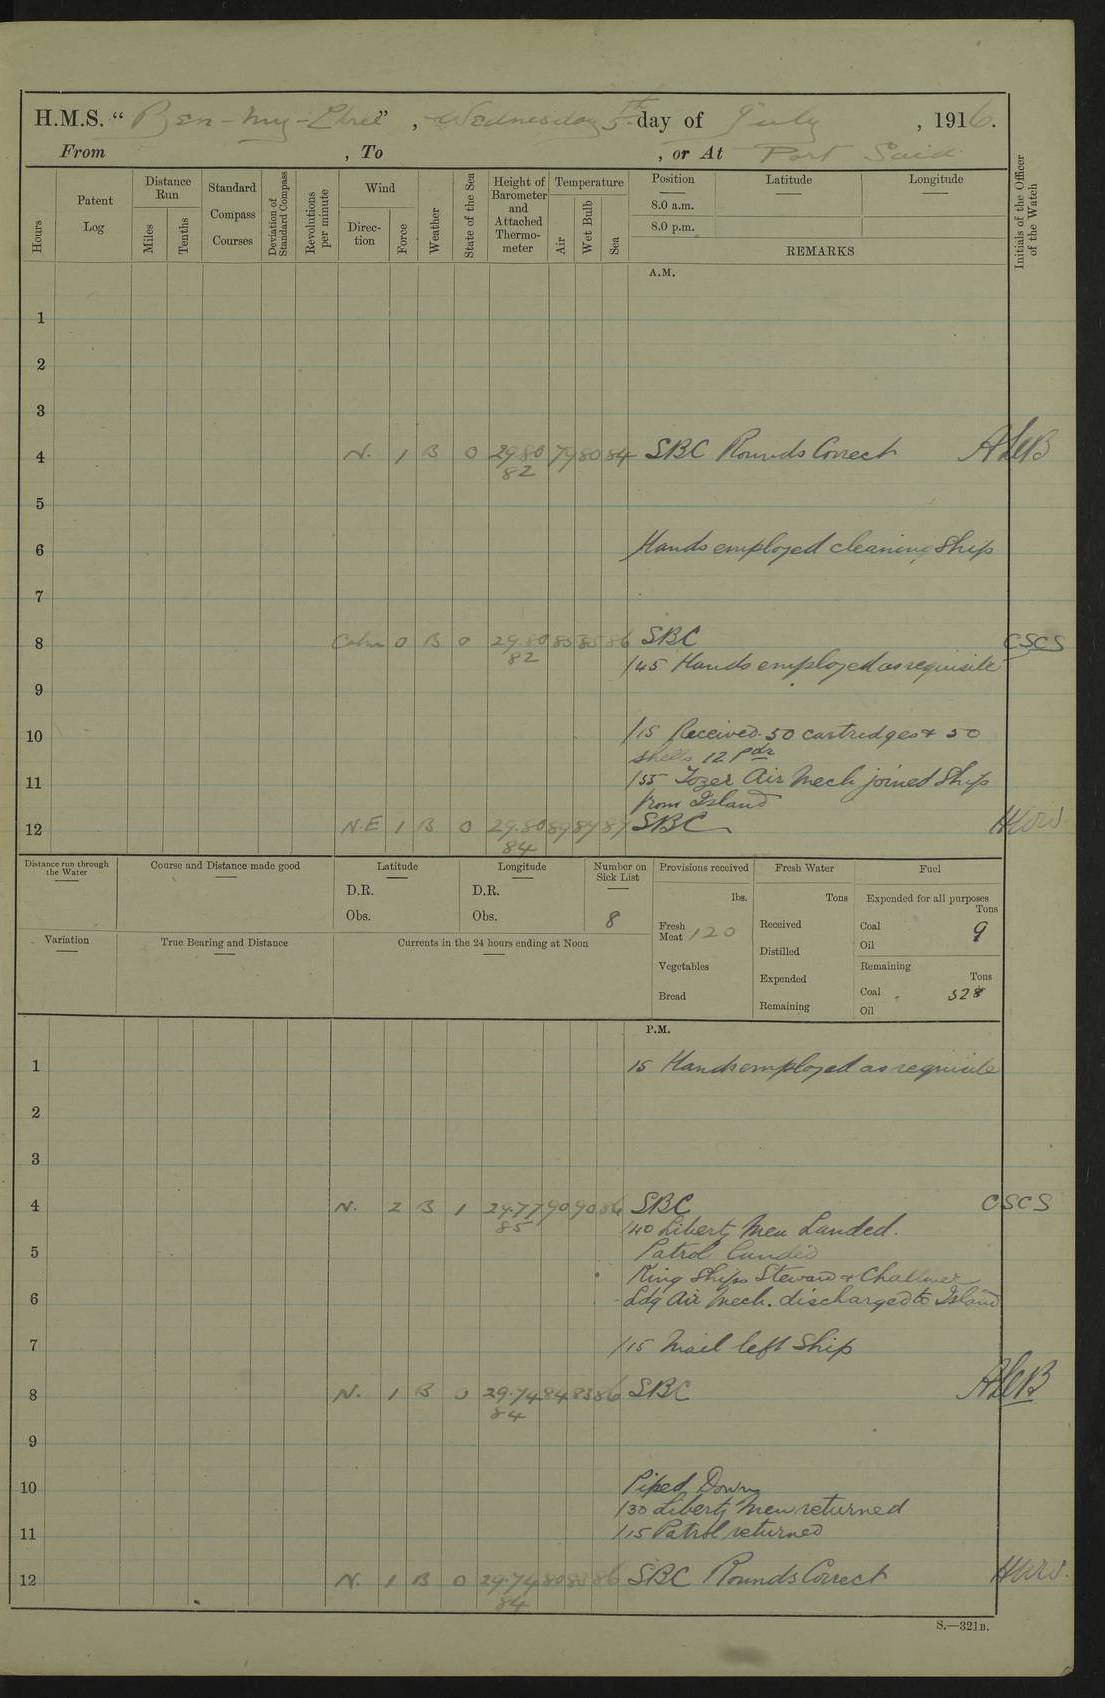 H.M.S. "Ben-my-Chree", Wednesday 5th day of July, 1916.
From , To , or At Port Said
Hours
Patent Log
Distance Run
Miles
Tenths
Standard Compass Courses
Deviation of Standard Compass
Revolutions per minute
Wind
Direction
Force
Weather
State of the Sea
Height of Barometer and Attached Thermometer
Temperature
Air
Wet Bulb
Sea
Position
8.0 a.m.
8.0 p.m.
Latitude
Longitude
REMARKS
Initials of the Officer of the Watch
A.M.
1
2
3
4 N. 1 B 0 29.80 79 80 84 SBC Rounds Correct ALeB
82
5
6 Hands employed cleaning Ship
7
8 Calm 0 B 0 29.80 85 85 86 SBC CSCS
82 /45 Hands employed as requisite
9
10 /15 Received 50 cartridges & 50
shells 12 pdr
11 /55 Tozer Air Mech joined Ship
from Island
12 N.E 1 B 0 29.80 89 87 87 SBC
84
Distance run through the Water
Course and Distance made good
Latitude
D.R.
Obs.
Longitude
D.R.
Obs.
Number on Sick List
8
Provisions received
lbs.
Fresh Meat 120
Vegetables
Bread
Fresh Water
Tons
Received
Distilled
Expended
Remaining
Fuel
Expended for all purposes
Tons
Coal 9
Oil
Remaining
Tons
Coal 328
Oil
Variation
True Bearing and Distance
Currents in the 24 hours ending at Noon
P.M.
1 15 Hands employed as requisite
2
3
4 N. 2 B 1 29.77 90 90 86 SBC CSCS
85 /40 Liberty Men Landed.
5 Patrol landed
King Ships Steward &
6 Ldg Air Mech. discharged to Island
7 /15 Mail left Ship
8 N. 1 B 0 29.74 84 83 86 SBC ALeB
84
9
10 Piped Down
/30 Liberty Men returned
11 /15 Patrol returned
12 N. 1 B 0 29.74 80 83 86 SBC Rounds Correct
84
S.—321B.